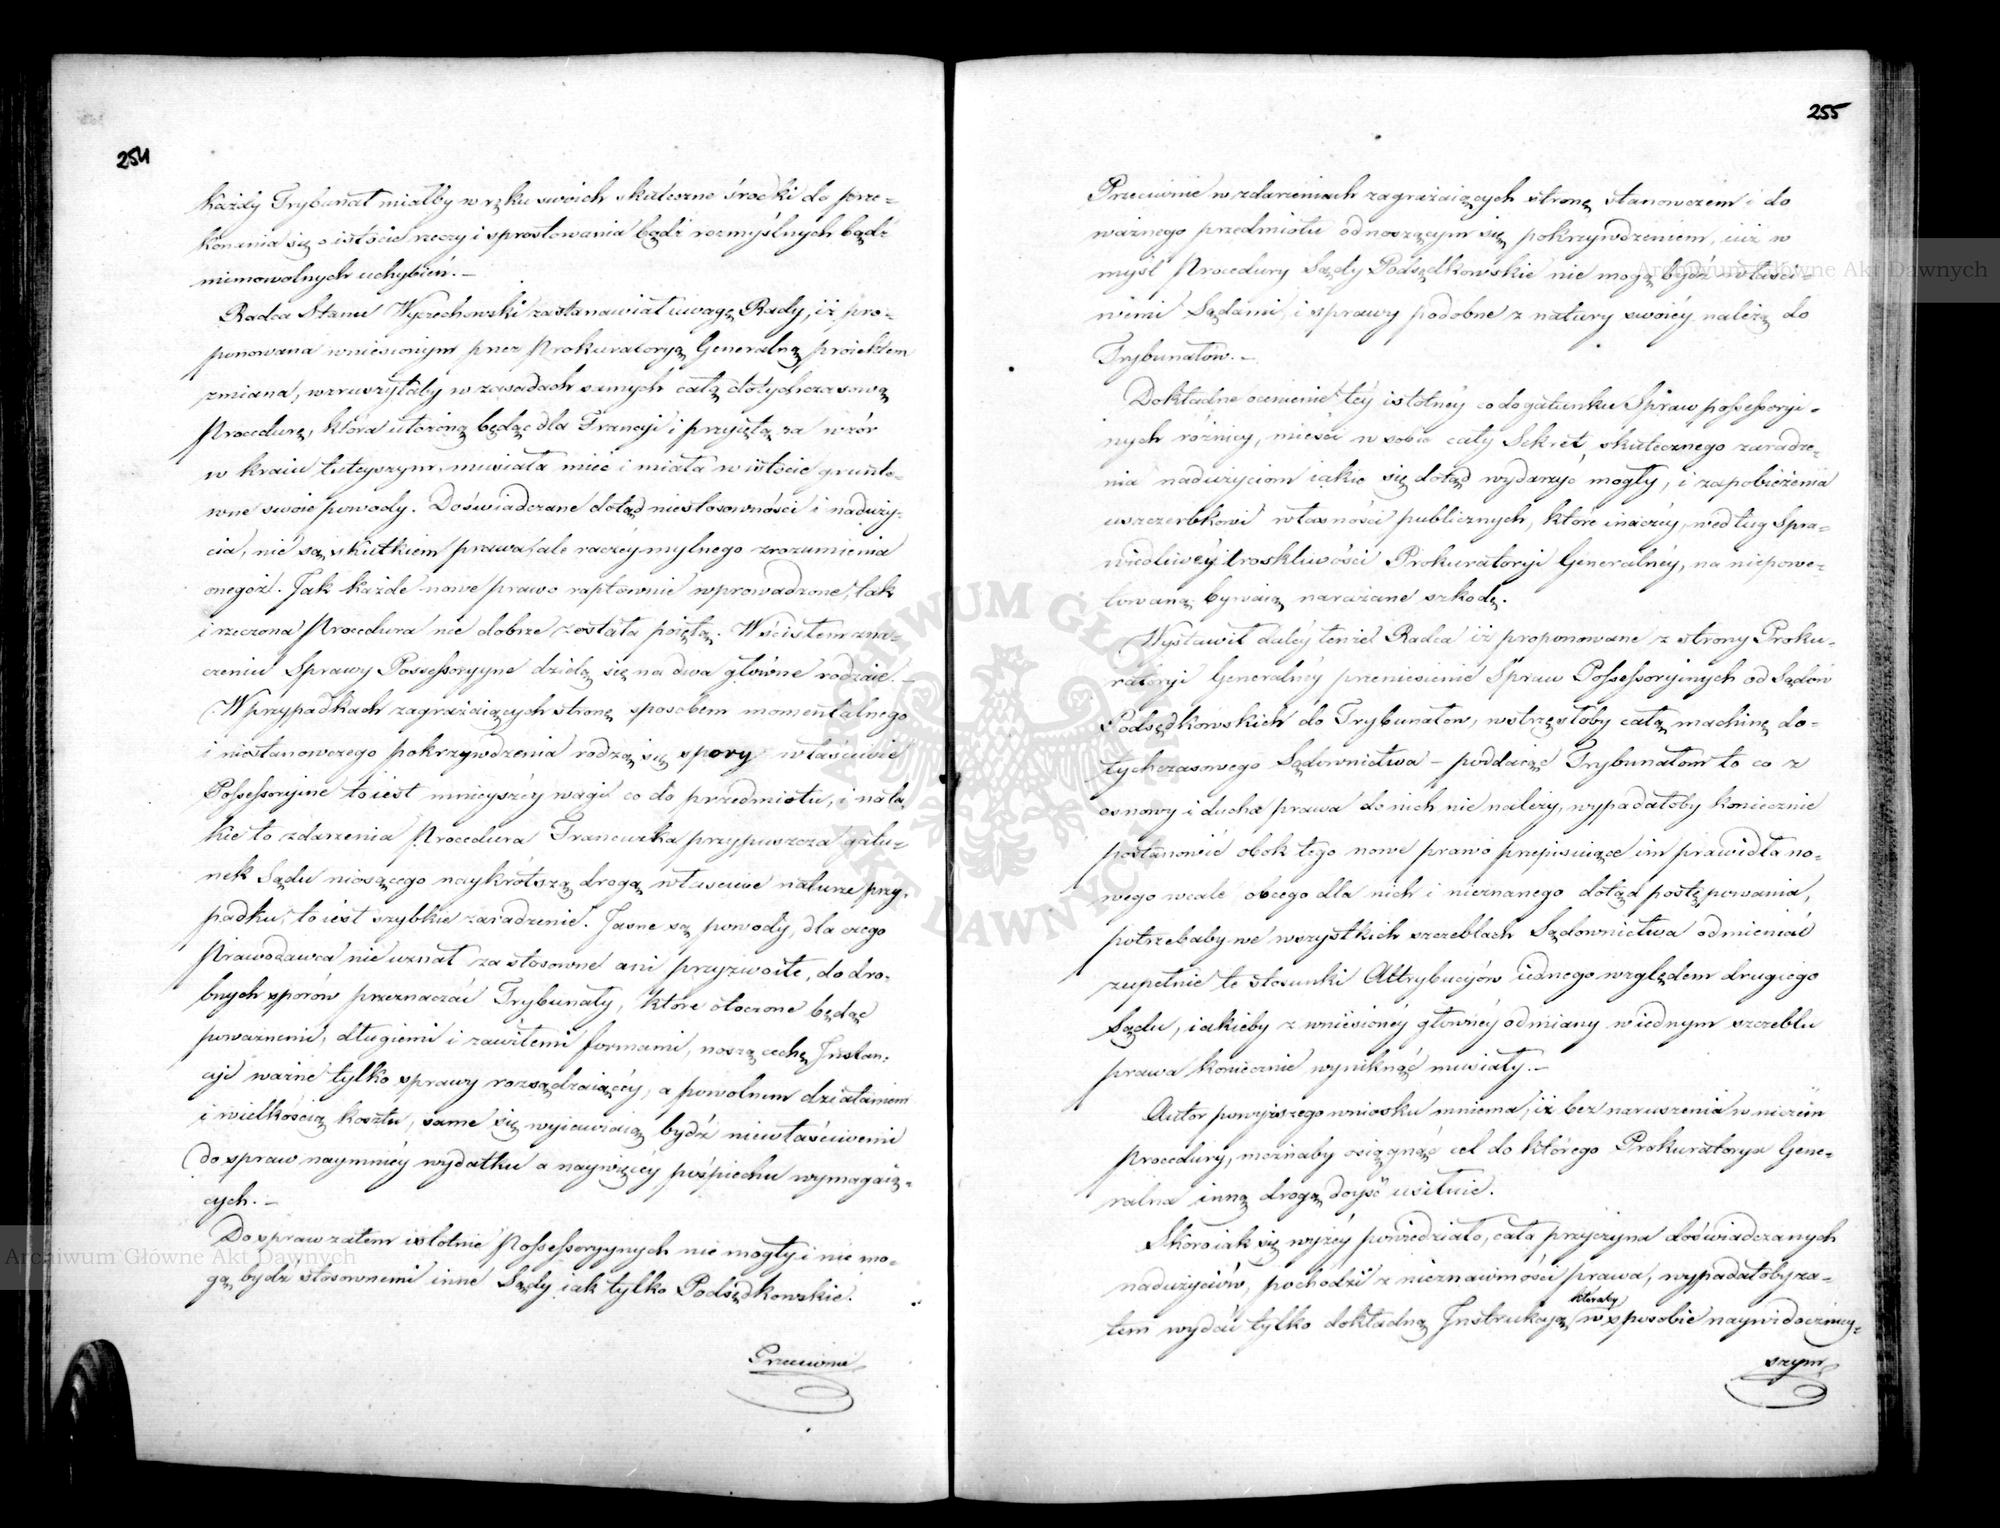 254
każdy Trybunał miałby w ręku swoich skuteczne środki do prze-
konania się o istocie rzeczy i sprostowania bądź rozmyślnych bądź
mimowolnych uchybień. –
Radca Stanu Wyczechowski zastanawiał uwagę Rady, iż pro-
ponowana wniesionym przez Prokuratoryą Generalną proiektem
zmiana, wzruszyłaby w zasadach samych całą dotychczasową
Procedurę, która ułożoną będąc dla Francyi i przyiętą za wzór
w kraiu tuteyszym, musiała mieć i miała w istocie grunto-
wne swoie powody. Doświadczane dotąd niestosowności i naduży-
cia, nie są skutkiem prawa, ale raczey mylnego zrozumienia
onegoż. Jak każde nowe prawo raptownie wprowadzone, tak
i rzeczona Procedura nie dobrze została poiętą. W ścisłem zna-
czeniu Sprawy Possessoryyne dzielą się na dwa główne rodzaie. –
W przypadkach zagrażaiących stronę sposobem momentalnego
i niestanowczego pokrzywdzenia rodzą się spory właściwie
Possessoryine to iest mnieyszéy wagi co do przedmiotu, i na ta-
kie to zdarzenia Procedura Francuzka przypuszcza gatu-
nek Sądu niosącego naykrótszą drogą właściwe naturze przy-
padku, to iest szybkie zaradzenie. Jasne są powody, dla czego
Prawodawca nie uznał za stosowne ani przyzwoite, do dro-
bnych sporów przeznaczać Trybunały, które otoczone będąc
poważnemi, długiemi i zawiłemi formami, noszą cechę Instan-
cyi ważne tylko sprawy rozsądzaiącéy, a powolnem działaniem
i wielkością kosztu, same się wyiawiaią bydź niewłaściwemi
do spraw naymniéy wydatku a naywięcéy pośpiechu wymagaią-
cych. –
Do spraw zatem istotnie Possessoryynych nie mogły i nie mo-
gą bydź stosownemi inne Sądy iak tylko Podsędkowskie.
Przeciwnie
255
Przeciwnie w zdarzeniach zagrażaiących stronę stanowczem i do
ważnego przedmiotu odnoszącym się pokrzywdzeniem, iuż w
myśl Procedury Sądy Podsędkowskie nie mogą bydź właści-
wemi Sądami, i sprawy podobne z natury swoiéy należą do
Trybunałów. –
Dokładne ocenienie téy istotnéy co do gatunku Spraw possessoryi-
nych różnicy, mieści w sobie cały Sekret, skutecznego zaradze-
nia nadużyciom iakie się dotąd wydarzyć mogły, i zapobieżenia
uszczerbkowi własności publicznych, które inaczéy, według Spra-
wiedliwéy troskliwości Prokuratoryi Generalnéy, na niepowe-
towaną bywaią narażane szkodę.
Wystawił daléy tenże Radca iż proponowane z strony Proku-
ratoryi Generalnéy przeniesienie Spraw Possessoryinych od Sądów
Podsędkowskich do Trybunałów, wstrzęsłoby całą machinę do-
tychczasowego Sądownictwa – poddaiąc Trybunałom to co z
osnowy i ducha prawa do nich nie należy, wypadałoby koniecznie
postanowić obok tego nowe prawo przepisuiące im prawidła no-
wego wcale obcego dla nich i nieznanego dotąd postępowania,
potrzebaby we wszystkich szczeblach Sądownictwa odmieniać
zupełnie te stosunki Attrybucyów iednego względem drugiego
Sądu, iakieby z wniesionéy główney odmiany w iednym szczeblu
prawa koniecznie wyniknąć musiały. –
Autor powyższego wniosku mniema, iż bez naruszenia w niczém
Procedury, możnaby osiągnąć cel do którego Prokuratorya Gene-
ralna inną drogą doyść usiłuie.
Skoro iak się wyżéy powiedziało, cała przyczyna doświadczanych
nadużyciów, pochodzi z nieznaiomości prawa, wypadałoby za-
tém wydać tylko dokładną Instrukcyą któraby w sposobie naywidoczniey-
szym
Archiwum Główne Akt Dawnych
Archiwum Główne Akt Dawnych
ARCHIWUM GŁÓWNE AKT DAWNYCH